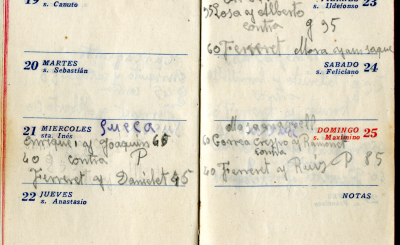 19
s. Canuto
20 MARTES
s. Sebastián
21 MIERCOLES Sueca
sta. Inés
Enrique I y Joaquin 65
40 contra P
Ferreret y Danielet 45
22 JUEVES
s. Anastasio
23
s. Ildefonso
35 Rosa y Alberto
contra g 35
60 Ferreret Mora y
SABADO 24
s. Feliciano
DOMINGO 25
s. Maximino
Correa Crespo y Ramonet
contra
40 Ferreret y Ruis P 85
NOTAS